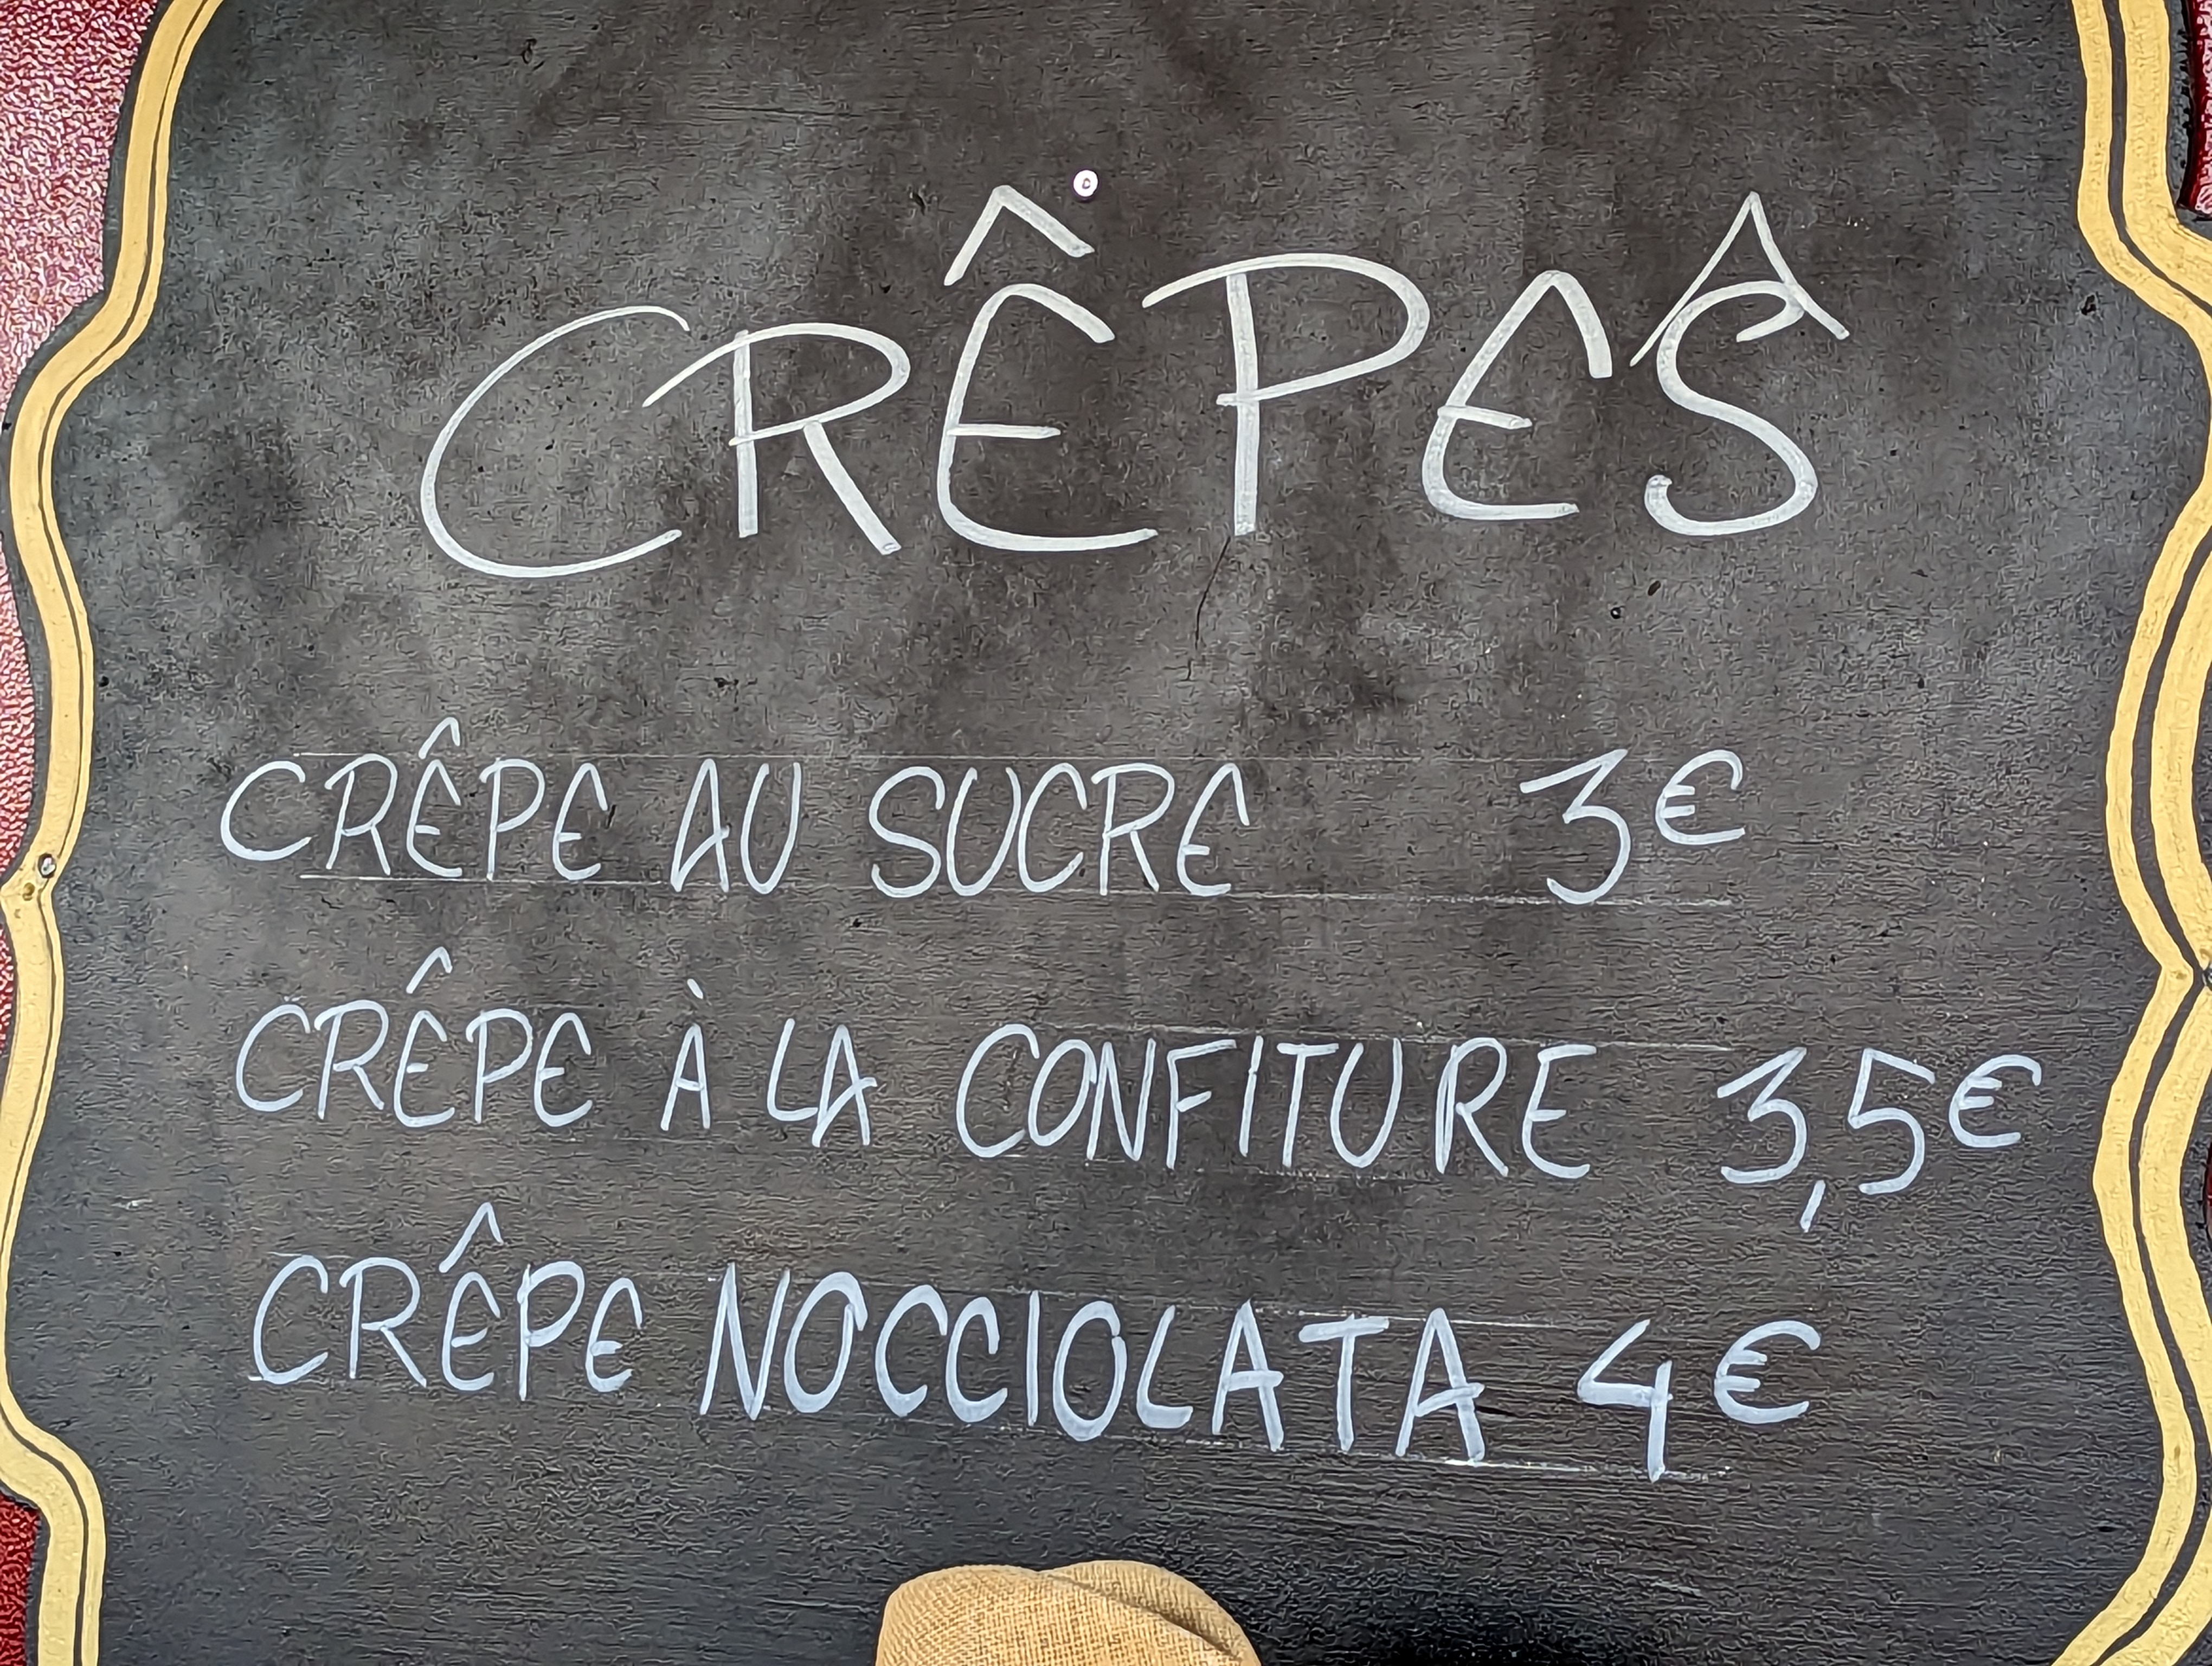 CRÊPEŜ
CRÊPE AU SUCRE 3€
CRÊPE À LA CONFITURE 3,5€
CRÊPE NOCCIOLATA 4€